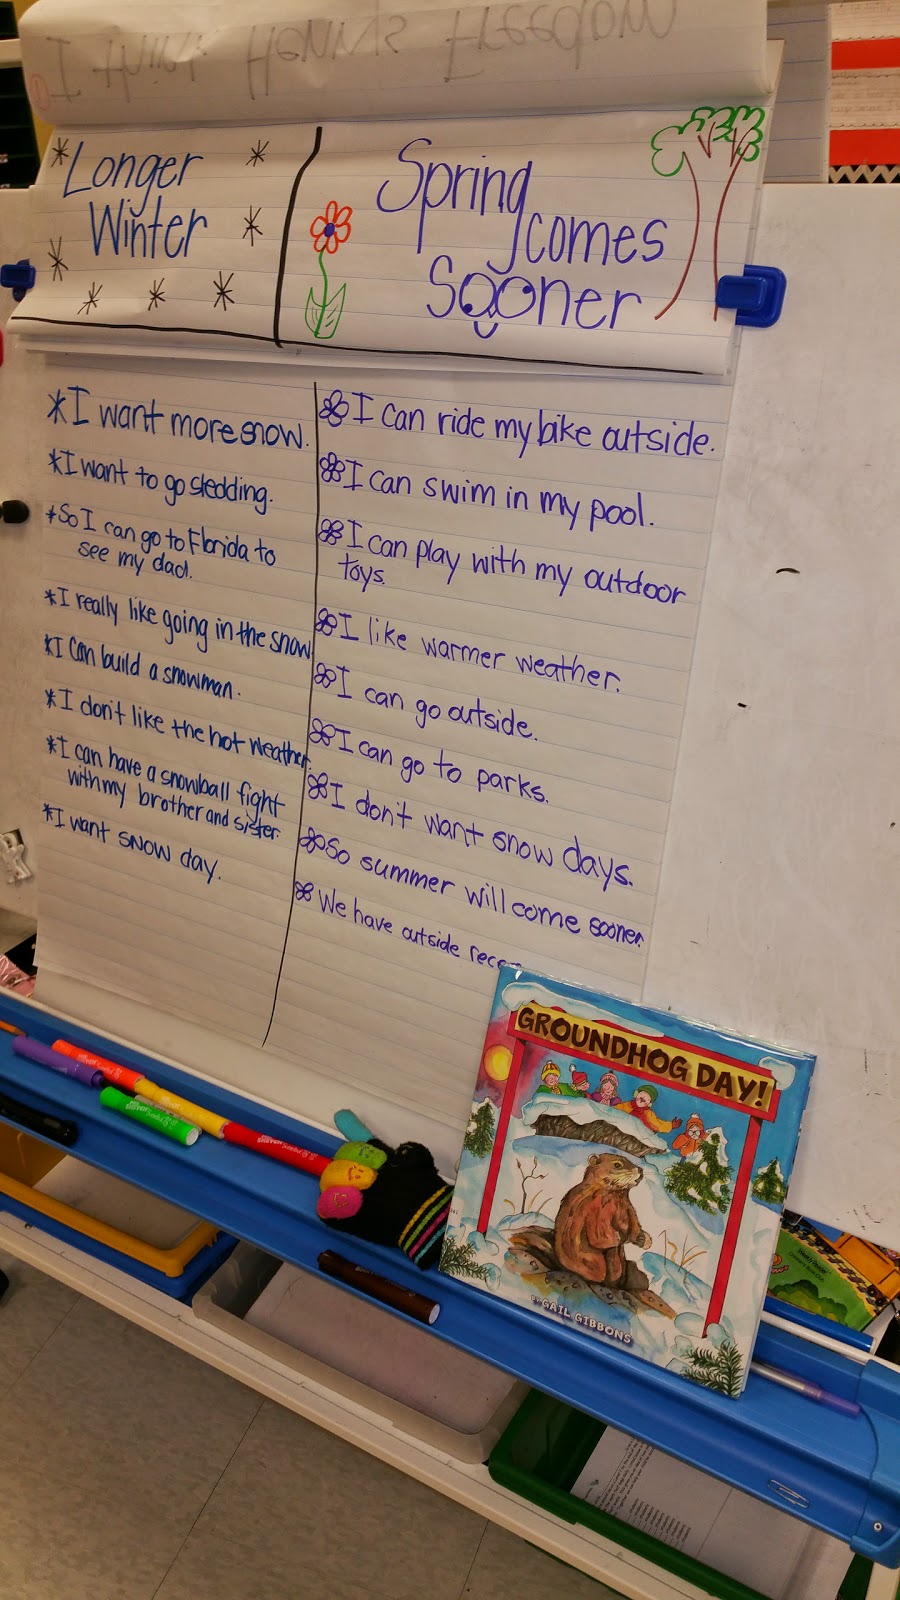 I think Henry's Freedom
Longer
Winter
Spring
comes
Sooner
*I want more snow.
*I want to go sledding.
*So I can go to Florida to
see my dad.
*I really like going in the snow
*I can build a snowman.
*I don't like the hot weather.
*I can have a snowball fight
with my brother and sister.
*I want snow day.
I can ride my bike outside.
I can swim in my pool.
I can play with my outdoor
toys.
I like warmer weather.
I can go outside.
I can go to parks.
I don't want snow days.
So summer will come sooner.
We have outside
GROUNDHOG DAY!
BY GAIL GIBBONS